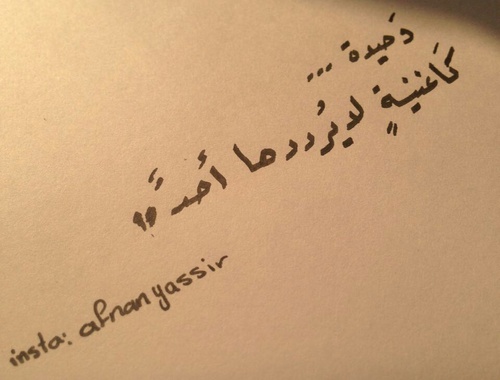 وَحيدة ...
كَأغنيةٍ لايُرددها أحدٌ "
insta: afnanyassir